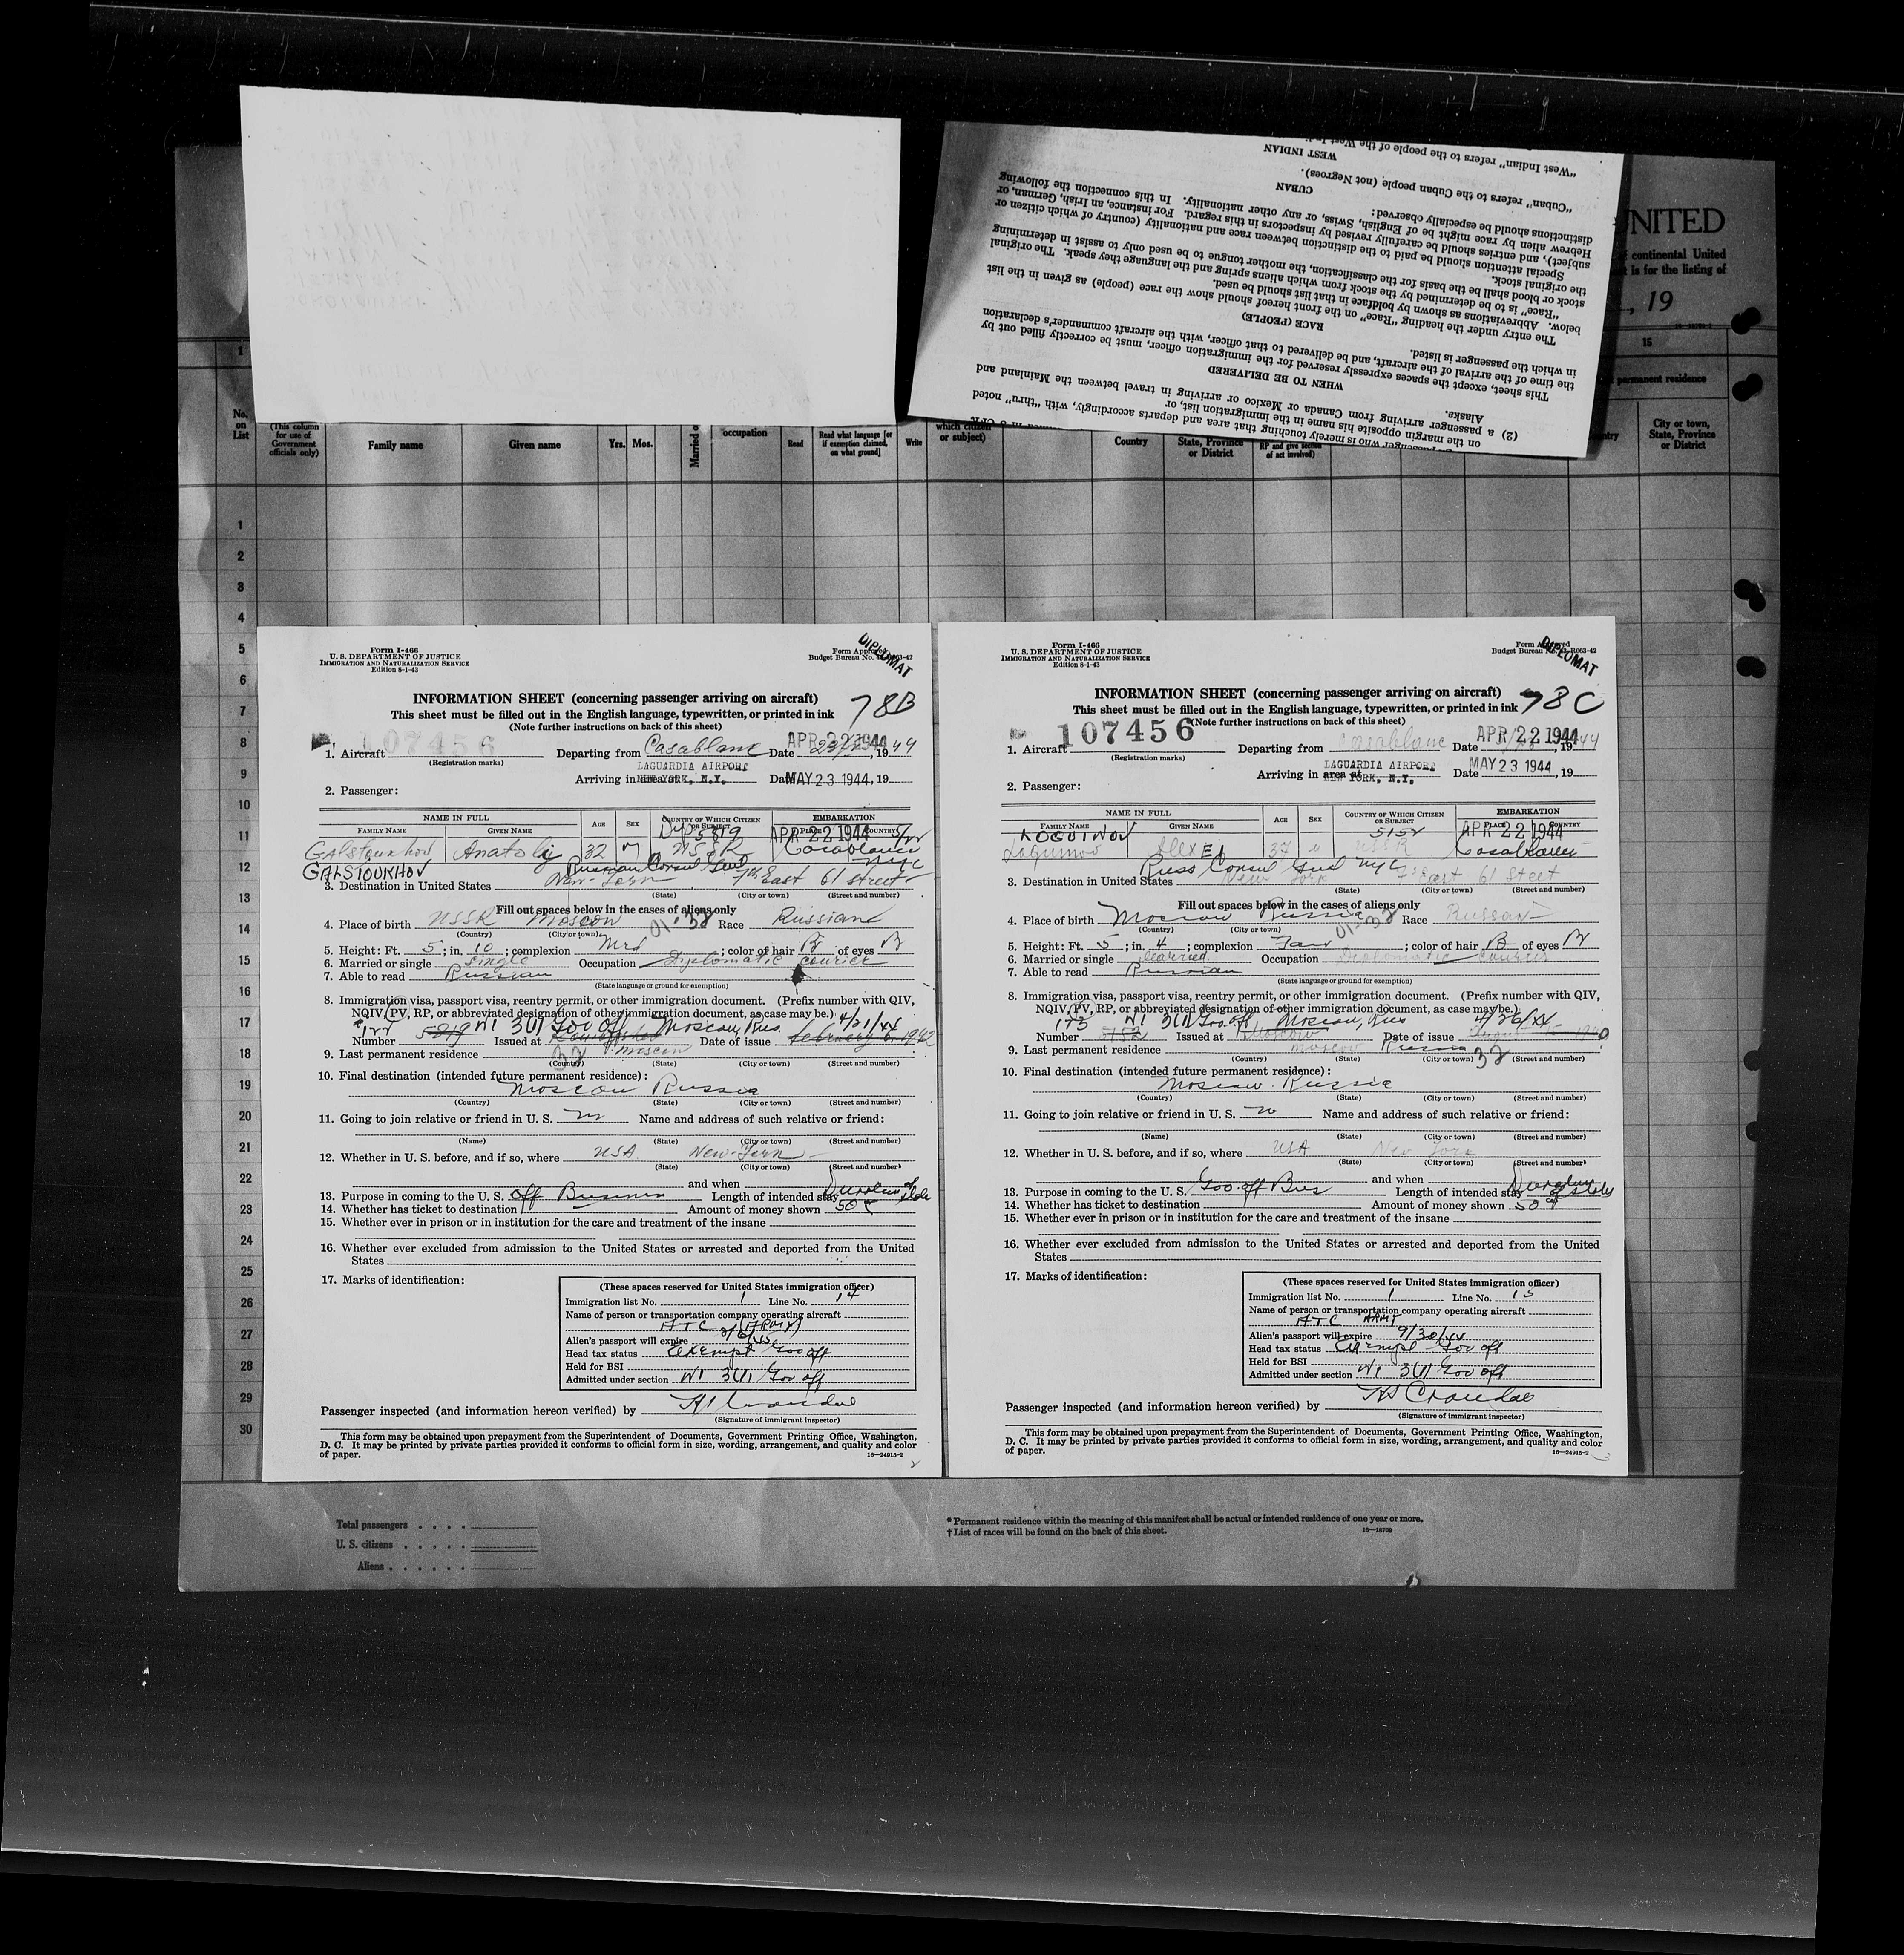 "West Indian" refers to the people of the West
WEST INDIAN
"Cuban" refers to the Cuban people (not Negroes).
CUBAN
distinctions should be especially observed:
Hebrew alien by race might be of English, Swiss, or any other nationality. In this connection the following
subject), and entries should be carefully revised by inspectors in this regard. For instance, an Irish, German, or
Special attention should be paid to the distinction between race and nationality (country of which citizen or
the original stock.
stock or blood shall be the basis for the classification, the mother tongue to be used only to assist in determining
"Race" is to be determined by the stock from which aliens spring and the language they speak. The original
below. Abbreviations as shown by boldface in that list should be used.
The entry under the heading "Race" on the front hereof should show the race (people) as given in the list
RACE (PEOPLE)
in which the passenger is listed.
the time of the arrival of the aircraft, and be delivered to that officer, with the aircraft commander's declaration
This sheet, except the spaces expressly reserved for the immigration officer, must be correctly filled out by
WHEN TO BE DELIVERED
Alaska.
(2) a passenger arriving from Canada or Mexico or arriving in travel between the Mainland and
on the margin opposite his name in the immigration list, or
passenger who is merely touching that area and departs accordingly, with "thru" noted
UNITED
continental United
is for the listing of
, 19
15
permanent residence
No. on List
(This column for use of Government officials only)
Family name
Given name
Yrs. Mos.
occupation
Read
Read what language [or if exemption claimed, on what ground]
Write
which citizen or subject)
Country
State, Province or District
RP and give section of act involved)
City or town, State, Province or District
1
1
2
3
4
5
6
7
8
9
10
11
12
13
14
15
16
17
18
19
20
21
22
23
24
25
26
27
28
29
30
Form I-466
U. S. DEPARTMENT OF JUSTICE
IMMIGRATION AND NATURALIZATION SERVICE
Edition 8-1-43
Form Approved
Budget Bureau No.
DIPLOMAT
INFORMATION SHEET (concerning passenger arriving on aircraft) 78B
This sheet must be filled out in the English language, typewritten, or printed in ink
(Note further instructions on back of this sheet)
107456
APR 22 1944
1. Aircraft Departing from Casablanc Date 23/ , 1944
(Registration marks)
LAGUARDIA AIRPORT
NEW YORK, N.Y.
Arriving in area at Date MAY 23 1944, 19
2. Passenger:
NAME IN FULL
FAMILY NAME
GIVEN NAME
AGE
SEX
COUNTRY OF WHICH CITIZEN OR SUBJECT
EMBARKATION
PLACE
COUNTRY
Dip 5219 APR 22 1944
Galstoukhov Anatolij 32 M USSR Casablanca
GALSTOUKHOV
Russian Consul Genl NYC
3. Destination in United States New-York 7th East 61 street
(State) (City or town) (Street and number)
Fill out spaces below in the cases of aliens only
4. Place of birth USSR Moscow Race Russian
(Country) (City or town)
5. Height: Ft. 5 ; in. 10 ; complexion Med ; color of hair Br of eyes Br
6. Married or single single Occupation Diplomatic courier
7. Able to read Russian
(State language or ground for exemption)
8. Immigration visa, passport visa, reentry permit, or other immigration document. (Prefix number with QIV,
NQIV, PV, RP, or abbreviated designation of other immigration document, as case may be.)
3(1) Gov off Moscow, Rus. 4/21/44
Number 5219 Issued at Date of issue February 1942
9. Last permanent residence Moscow
(Country) (State) (City or town) (Street and number)
10. Final destination (intended future permanent residence):
Moscow Russia
(Country) (State) (City or town) (Street and number)
11. Going to join relative or friend in U. S. no Name and address of such relative or friend:
(Name) (State) (City or town) (Street and number)
12. Whether in U. S. before, and if so, where USA New-York
(State) (City or town) (Street and number)
and when
13. Purpose in coming to the U. S. Off Business Length of intended stay Duration of
14. Whether has ticket to destination Amount of money shown 50
15. Whether ever in prison or in institution for the care and treatment of the insane
16. Whether ever excluded from admission to the United States or arrested and deported from the United
States
17. Marks of identification:
(These spaces reserved for United States immigration officer)
Immigration list No. 1 Line No. 14
Name of person or transportation company operating aircraft
ATC (ARMY)
Alien's passport will expire
Head tax status Exempt Gov off
Held for BSI
Admitted under section 3(1) Gov off
Passenger inspected (and information hereon verified) by
(Signature of immigrant inspector)
This form may be obtained upon prepayment from the Superintendent of Documents, Government Printing Office, Washington,
D. C. It may be printed by private parties provided it conforms to official form in size, wording, arrangement, and quality and color
of paper.
16—24915-2
Form I-466
U. S. DEPARTMENT OF JUSTICE
IMMIGRATION AND NATURALIZATION SERVICE
Edition 8-1-43
Form Approved
Budget Bureau No. R063-42
DIPLOMAT
INFORMATION SHEET (concerning passenger arriving on aircraft) 78C
This sheet must be filled out in the English language, typewritten, or printed in ink
(Note further instructions on back of this sheet)
107456
APR 22 1944
1. Aircraft Departing from Casablanc Date , 1944
(Registration marks)
LAGUARDIA AIRPORT
NEW YORK, N.Y.
Arriving in area at Date MAY 23 1944, 19
2. Passenger:
NAME IN FULL
FAMILY NAME
GIVEN NAME
AGE
SEX
COUNTRY OF WHICH CITIZEN OR SUBJECT
EMBARKATION
PLACE
COUNTRY
LOGUINOV 5152 APR 22 1944
AlexEI 37 USSR Casablanca
Russ Consul Genl NYC
3. Destination in United States New York 7 East 61 Street
(State) (City or town) (Street and number)
Fill out spaces below in the cases of aliens only
4. Place of birth Moscow Russia Race Russan
(Country) (City or town)
5. Height: Ft. 5 ; in. 4 ; complexion Fair ; color of hair B of eyes Br
6. Married or single Married Occupation Diplomatic courier
7. Able to read Russian
(State language or ground for exemption)
8. Immigration visa, passport visa, reentry permit, or other immigration document. (Prefix number with QIV,
NQIV, PV, RP, or abbreviated designation of other immigration document, as case may be.)
3(1) Gov. off Moscow, Rus 4/26/44
Number 5152 Issued at Moscow Date of issue
9. Last permanent residence Moscow Russia
(Country) (State) (City or town) (Street and number)
10. Final destination (intended future permanent residence):
Moscow Russia
(Country) (State) (City or town) (Street and number)
11. Going to join relative or friend in U. S. no Name and address of such relative or friend:
(Name) (State) (City or town) (Street and number)
12. Whether in U. S. before, and if so, where USA New York
(State) (City or town) (Street and number)
and when
13. Purpose in coming to the U. S. Gov. off Bus Length of intended stay Duration
14. Whether has ticket to destination Amount of money shown 50
15. Whether ever in prison or in institution for the care and treatment of the insane
16. Whether ever excluded from admission to the United States or arrested and deported from the United
States
17. Marks of identification:
(These spaces reserved for United States immigration officer)
Immigration list No. 1 Line No. 15
Name of person or transportation company operating aircraft
ATC ARMY
Alien's passport will expire 9/30/44
Head tax status Exempt Gov off
Held for BSI
Admitted under section 3(1) Gov off
Passenger inspected (and information hereon verified) by
(Signature of immigrant inspector)
This form may be obtained upon prepayment from the Superintendent of Documents, Government Printing Office, Washington,
D. C. It may be printed by private parties provided it conforms to official form in size, wording, arrangement, and quality and color
of paper.
16—24915-2
Total passengers
U. S. citizens
Aliens
* Permanent residence within the meaning of this manifest shall be actual or intended residence of one year or more.
† List of races will be found on the back of this sheet.
16—18709